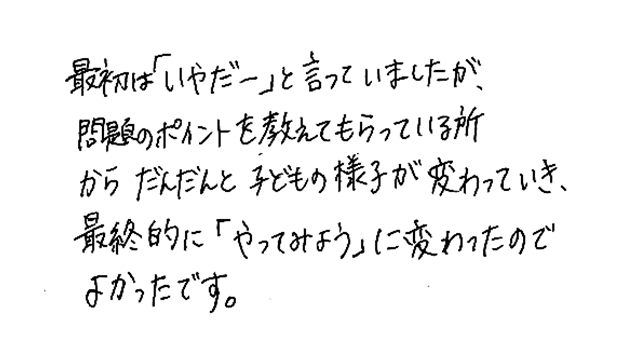 最初は「いやだー」と言っていましたが、
問題のポイントを教えてもらっている所
から だんだんと 子どもの様子が 変わっていき、
最終的に「やってみよう」に変わったので
よかったです。